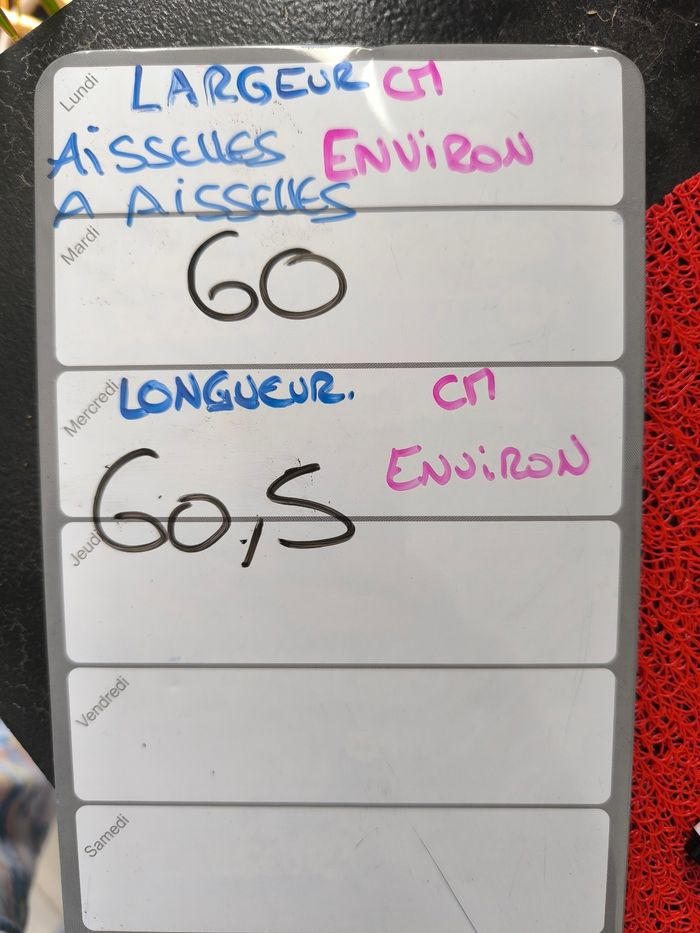 Lundi
LARGEUR CM
AiSSELLES ENViRON
A AiSSELLES
Mardi
60
Mercredi
LONGUEUR. CM
ENViRON
60,5
Jeudi
Vendredi
Samedi